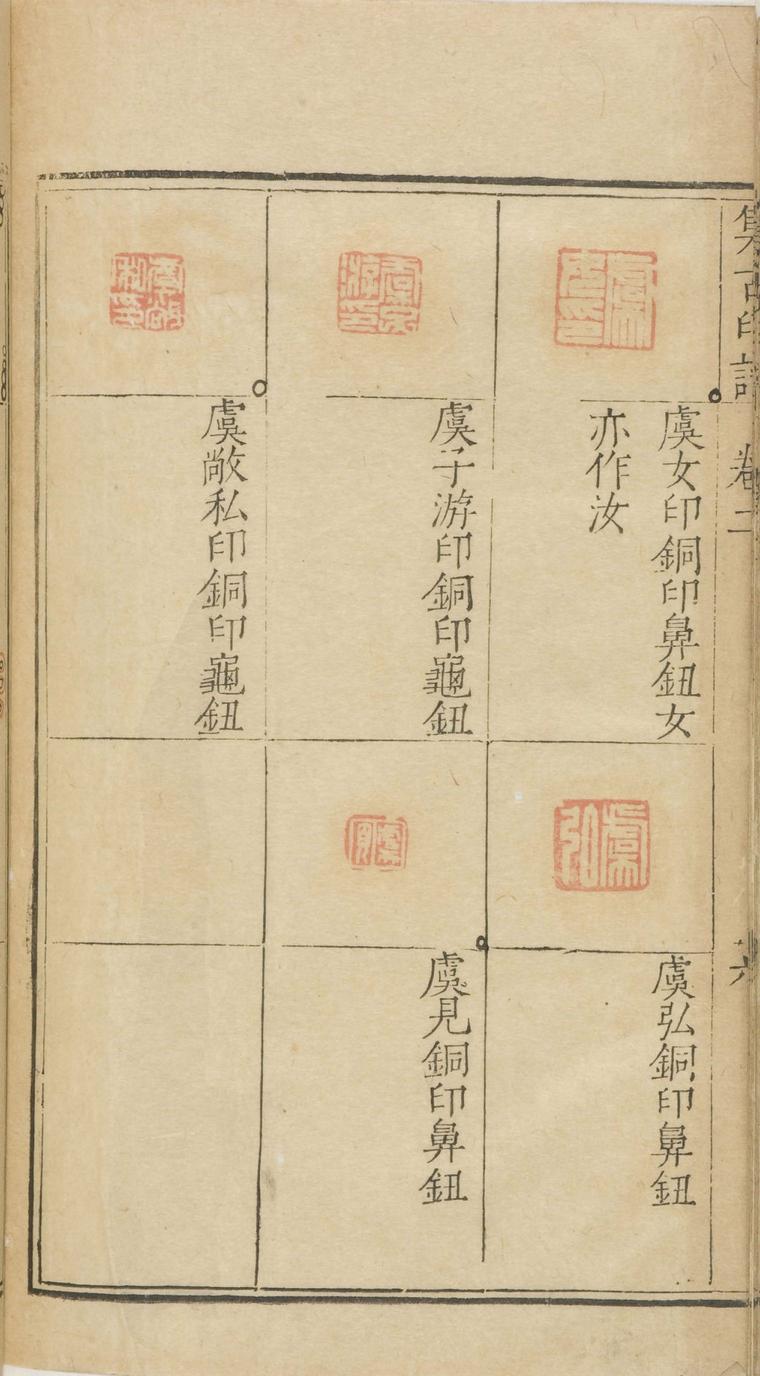 集古印譜 卷二 六
虞女印銅印鼻鈕女
亦作汝
虞子游印銅印龜鈕
虞敞私印銅印龜鈕
虞弘銅印鼻鈕
虞見銅印鼻鈕